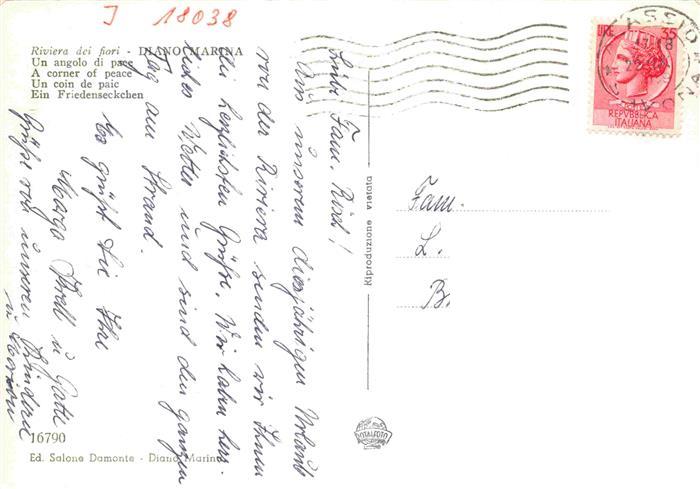 I 18038
Riviera dei fiori - DIANO MARINA
Un angolo di pace
A corner of peace
Un coin de paic
Ein Friedenseckchen
Liebe Fam.
Aus unserem diesjährigen Urlaub
von der Riviera senden wir Ihnen
die herzlichsten Grüße. Wir haben herr-
liches Wetter und sind den ganzen
Tag am Strand.
Es grüßt Sie Ihre
u. Gatte
Grüße von unseren Kindern
16790
Ed. Salone Damonte - Diano Marina
Riproduzione vietata
LIRE 35
REPVBBLICA
ITALIANA
Fam.
L.
B.